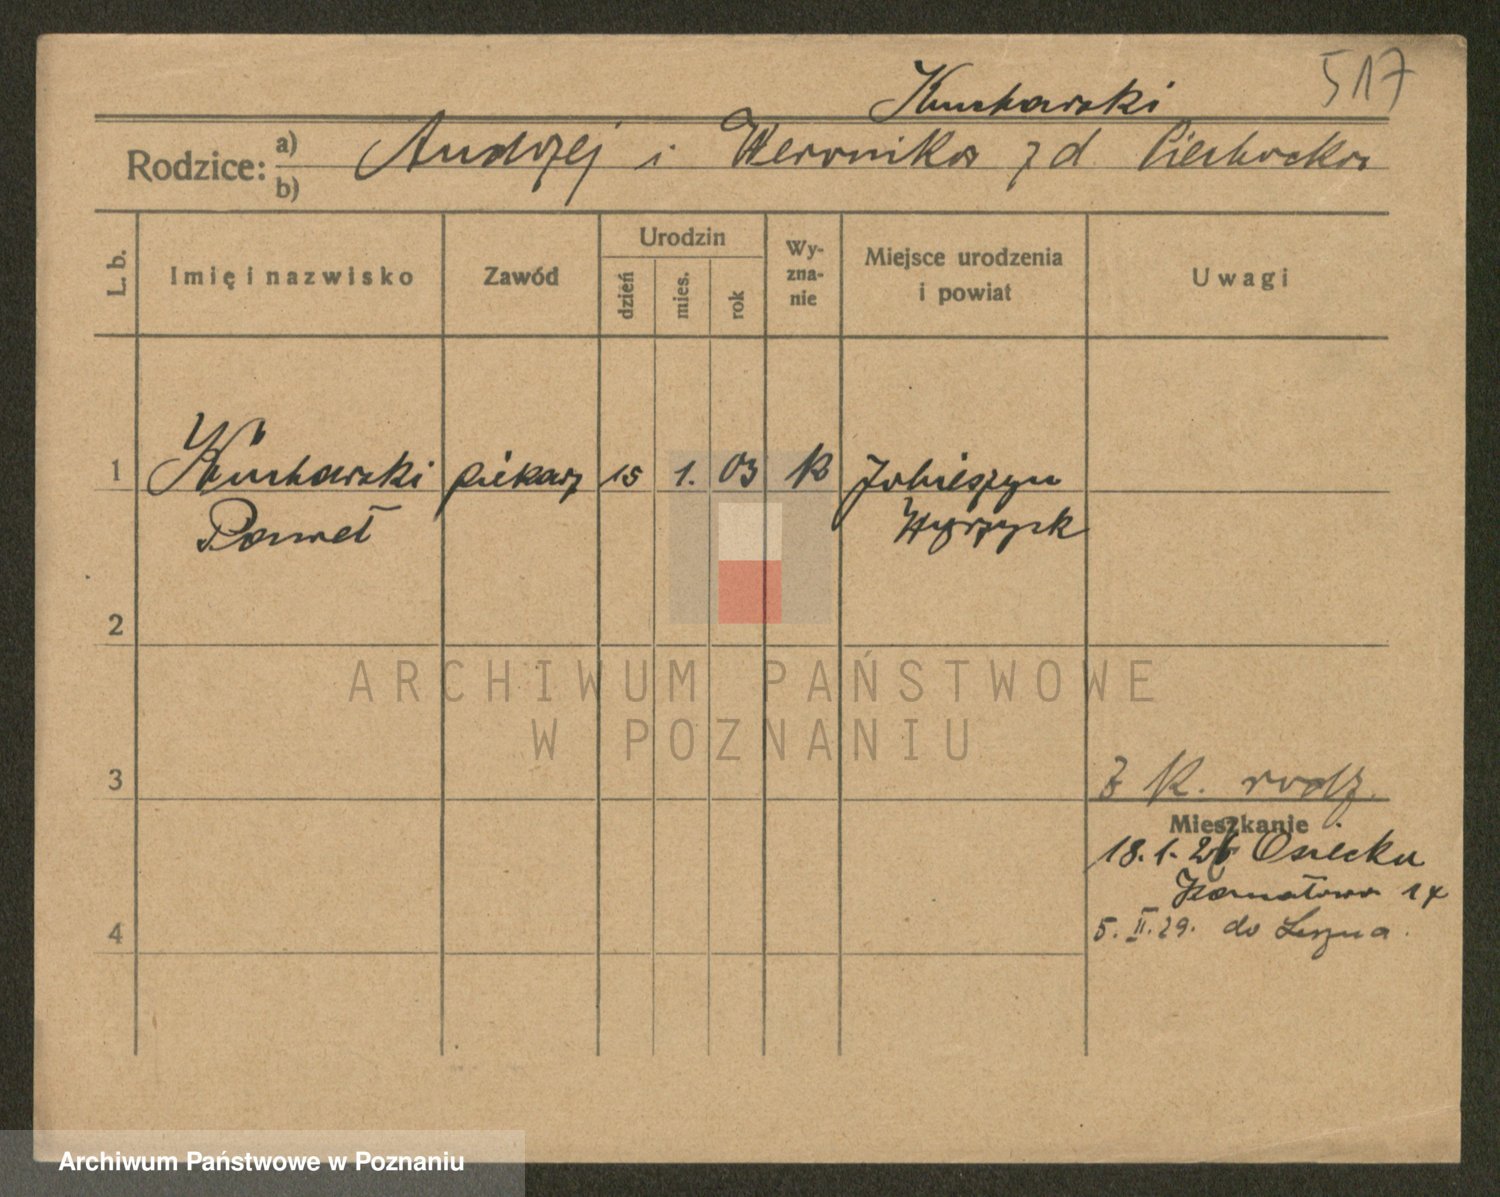 517
Kucharski
Rodzice: a) Andrzej i Weronika z d. Ciechocka
b)
L. b.
Imię i nazwisko
Zawód
Urodzin
dzień
mies.
rok
Wy-
zna-
nie
Miejsce urodzenia
i powiat
Uwagi
1 Kucharski piekarz 15 1. 03 k
Paweł Wyrzysk
2
ARCHIWUM PAŃSTWOWE
W POZNANIU
3
z k. rodz.
Mieszkanie
18.1.26 Osiecka
4
5. II. 29. do Leszna.
Archiwum Państwowe w Poznaniu